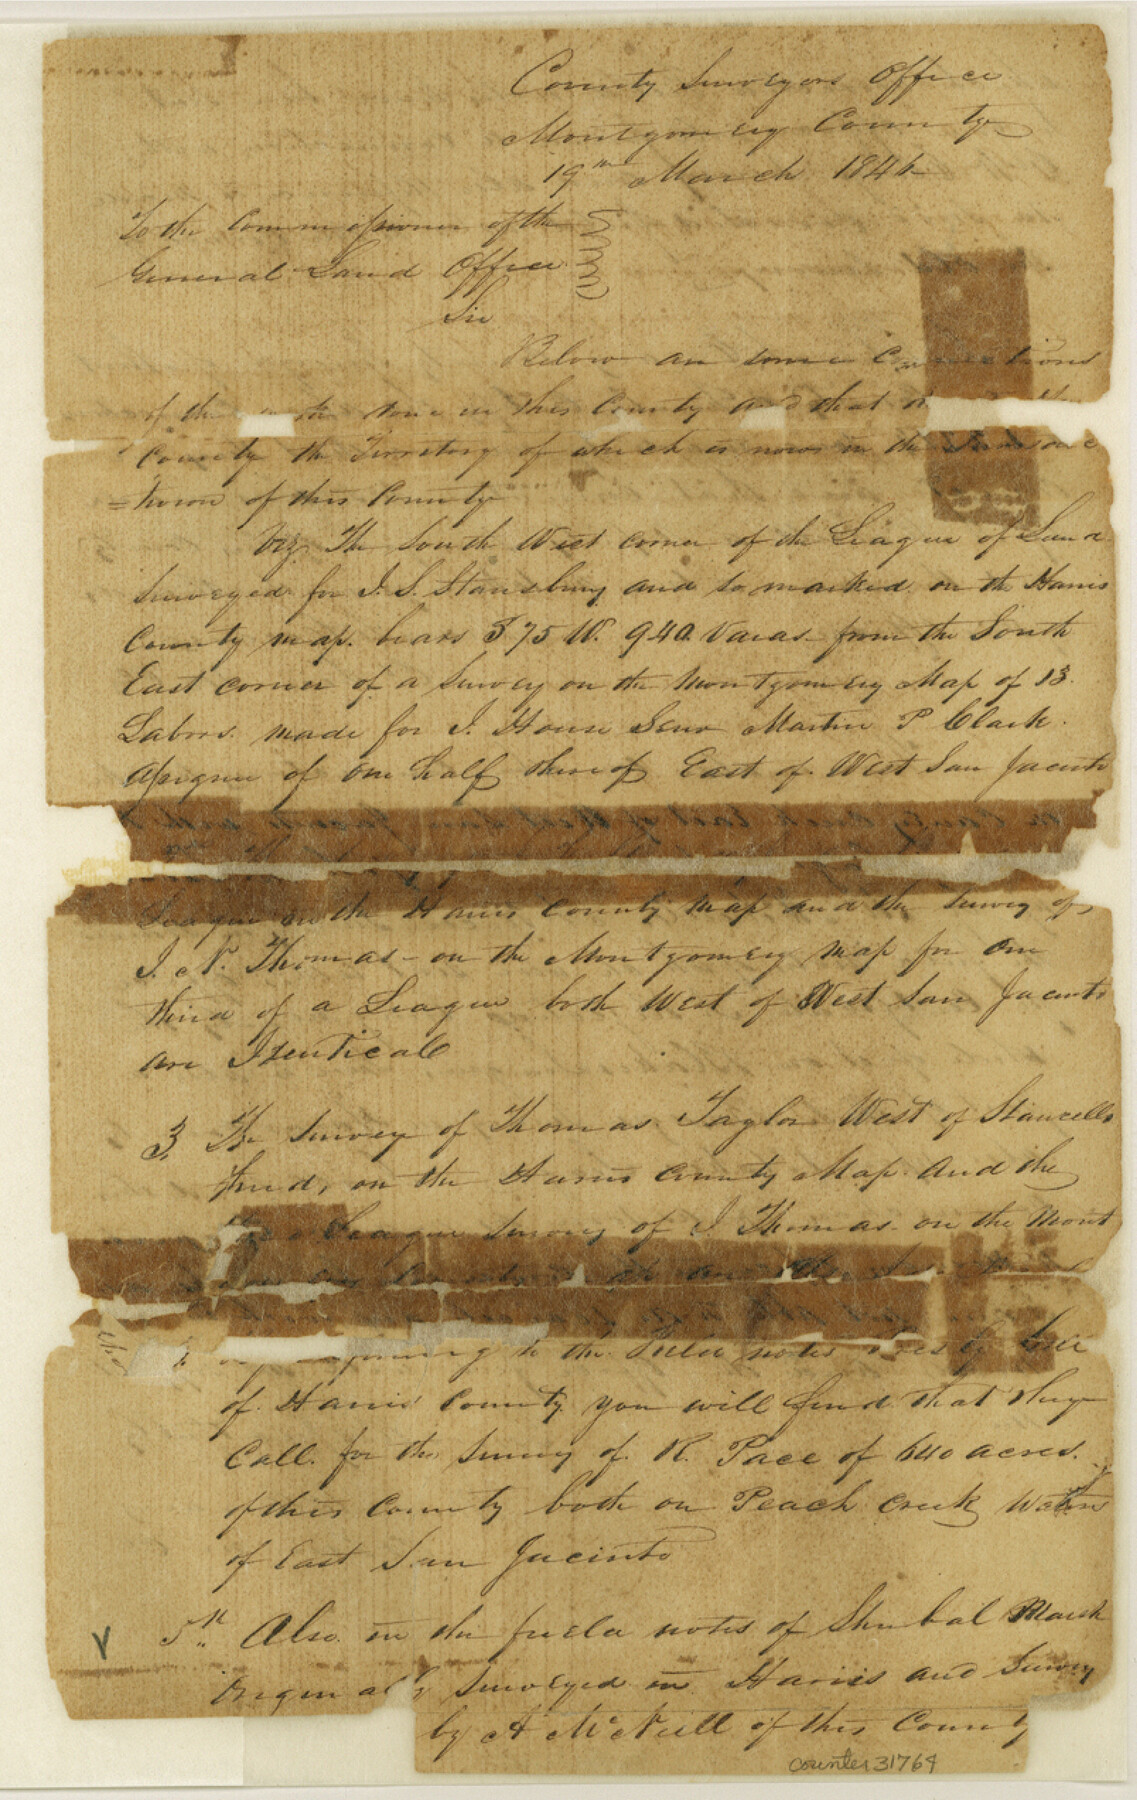 County Surveyors Office
Montgomery County
19th March 1846
To the Commissioner of the
General Land Office
Sir
Below are some Connections
of the in this County and that
County the Territory of which is now in the
of this County
Viz. The South West corner of the League of Land
Surveyed for J. S. Stansbury and so marked on the Harris
County map. bears S 75 W. 940. Varas from the South
East corner of a Survey on the Montgomery Map of 13
Labors. made for J. House Senr Martin P Clark.
Assignee of one half thereof East of West San Jacinto
League on the Harris County map and the Survey of
J. N. Thomas - on the Montgomery map for one
third of a League both West of West San Jacinto
are Identical
3. The Survey of Thomas Taylor West of
on the Harris County Map. and the
League Survey of J Thomas on the Mont
to the Field notes
of Harris County you will find that they
Call. for the Survey of R. Pace of 640 acres.
of this County both on Peach Creek Waters
of East San Jacinto
5th Also in the field notes of Shubal Marsh
Originally Surveyed in Harris and Survey
by A McNeill of this County
counter 31764